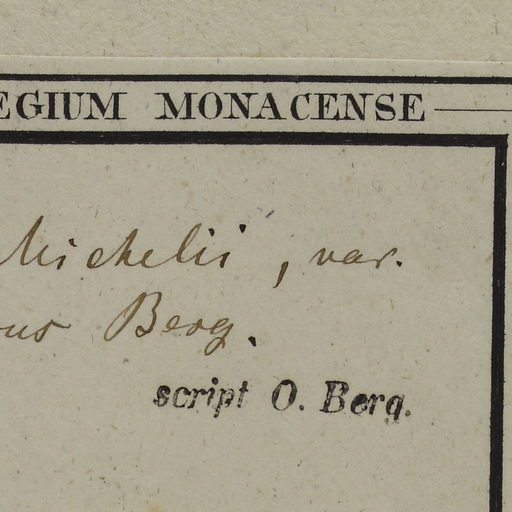 EGIUM MONACENSE
Michelii, var.
us Berg.
script O. Berg.